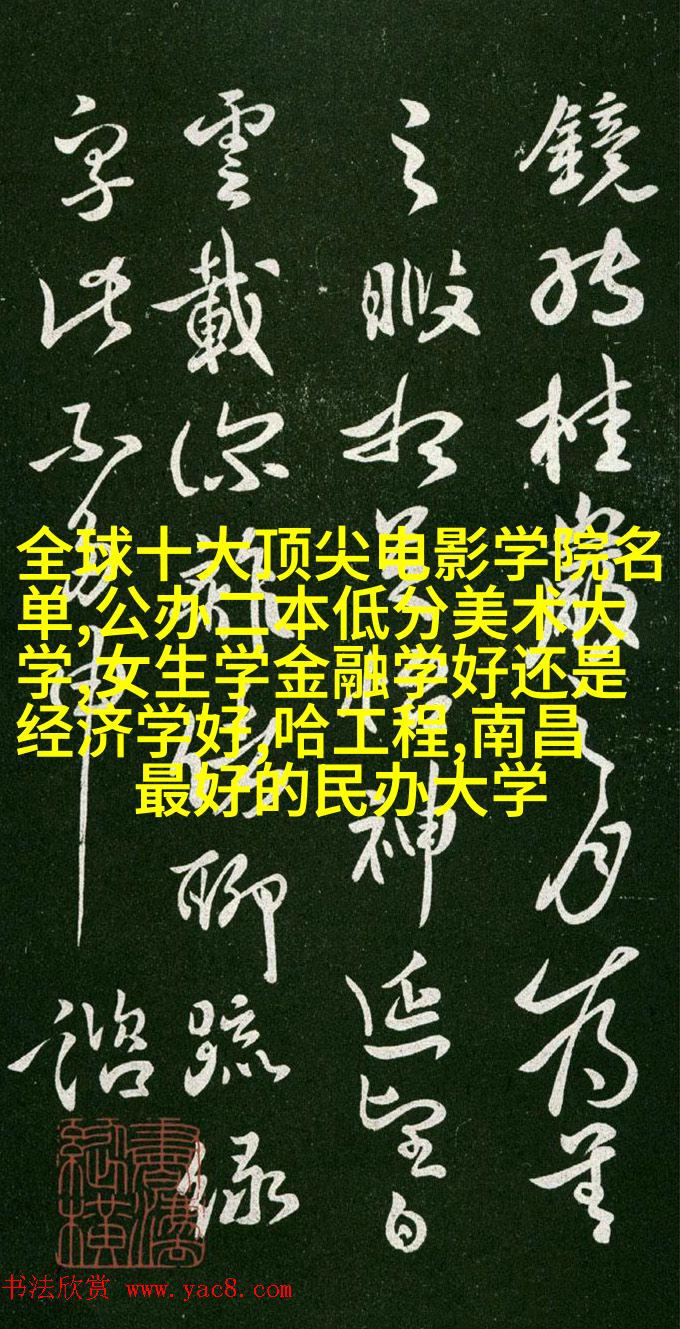 全球十大顶尖电影学院名
单,公办二本低分美术大
学,女生学金融学好还是
经济学好,哈工程,南昌
最好的民办大学
鏡 桂巖之月為
之暇想神延望白
雲載深聊疏綠
字此不多申
书法欣赏 www.yac8.com